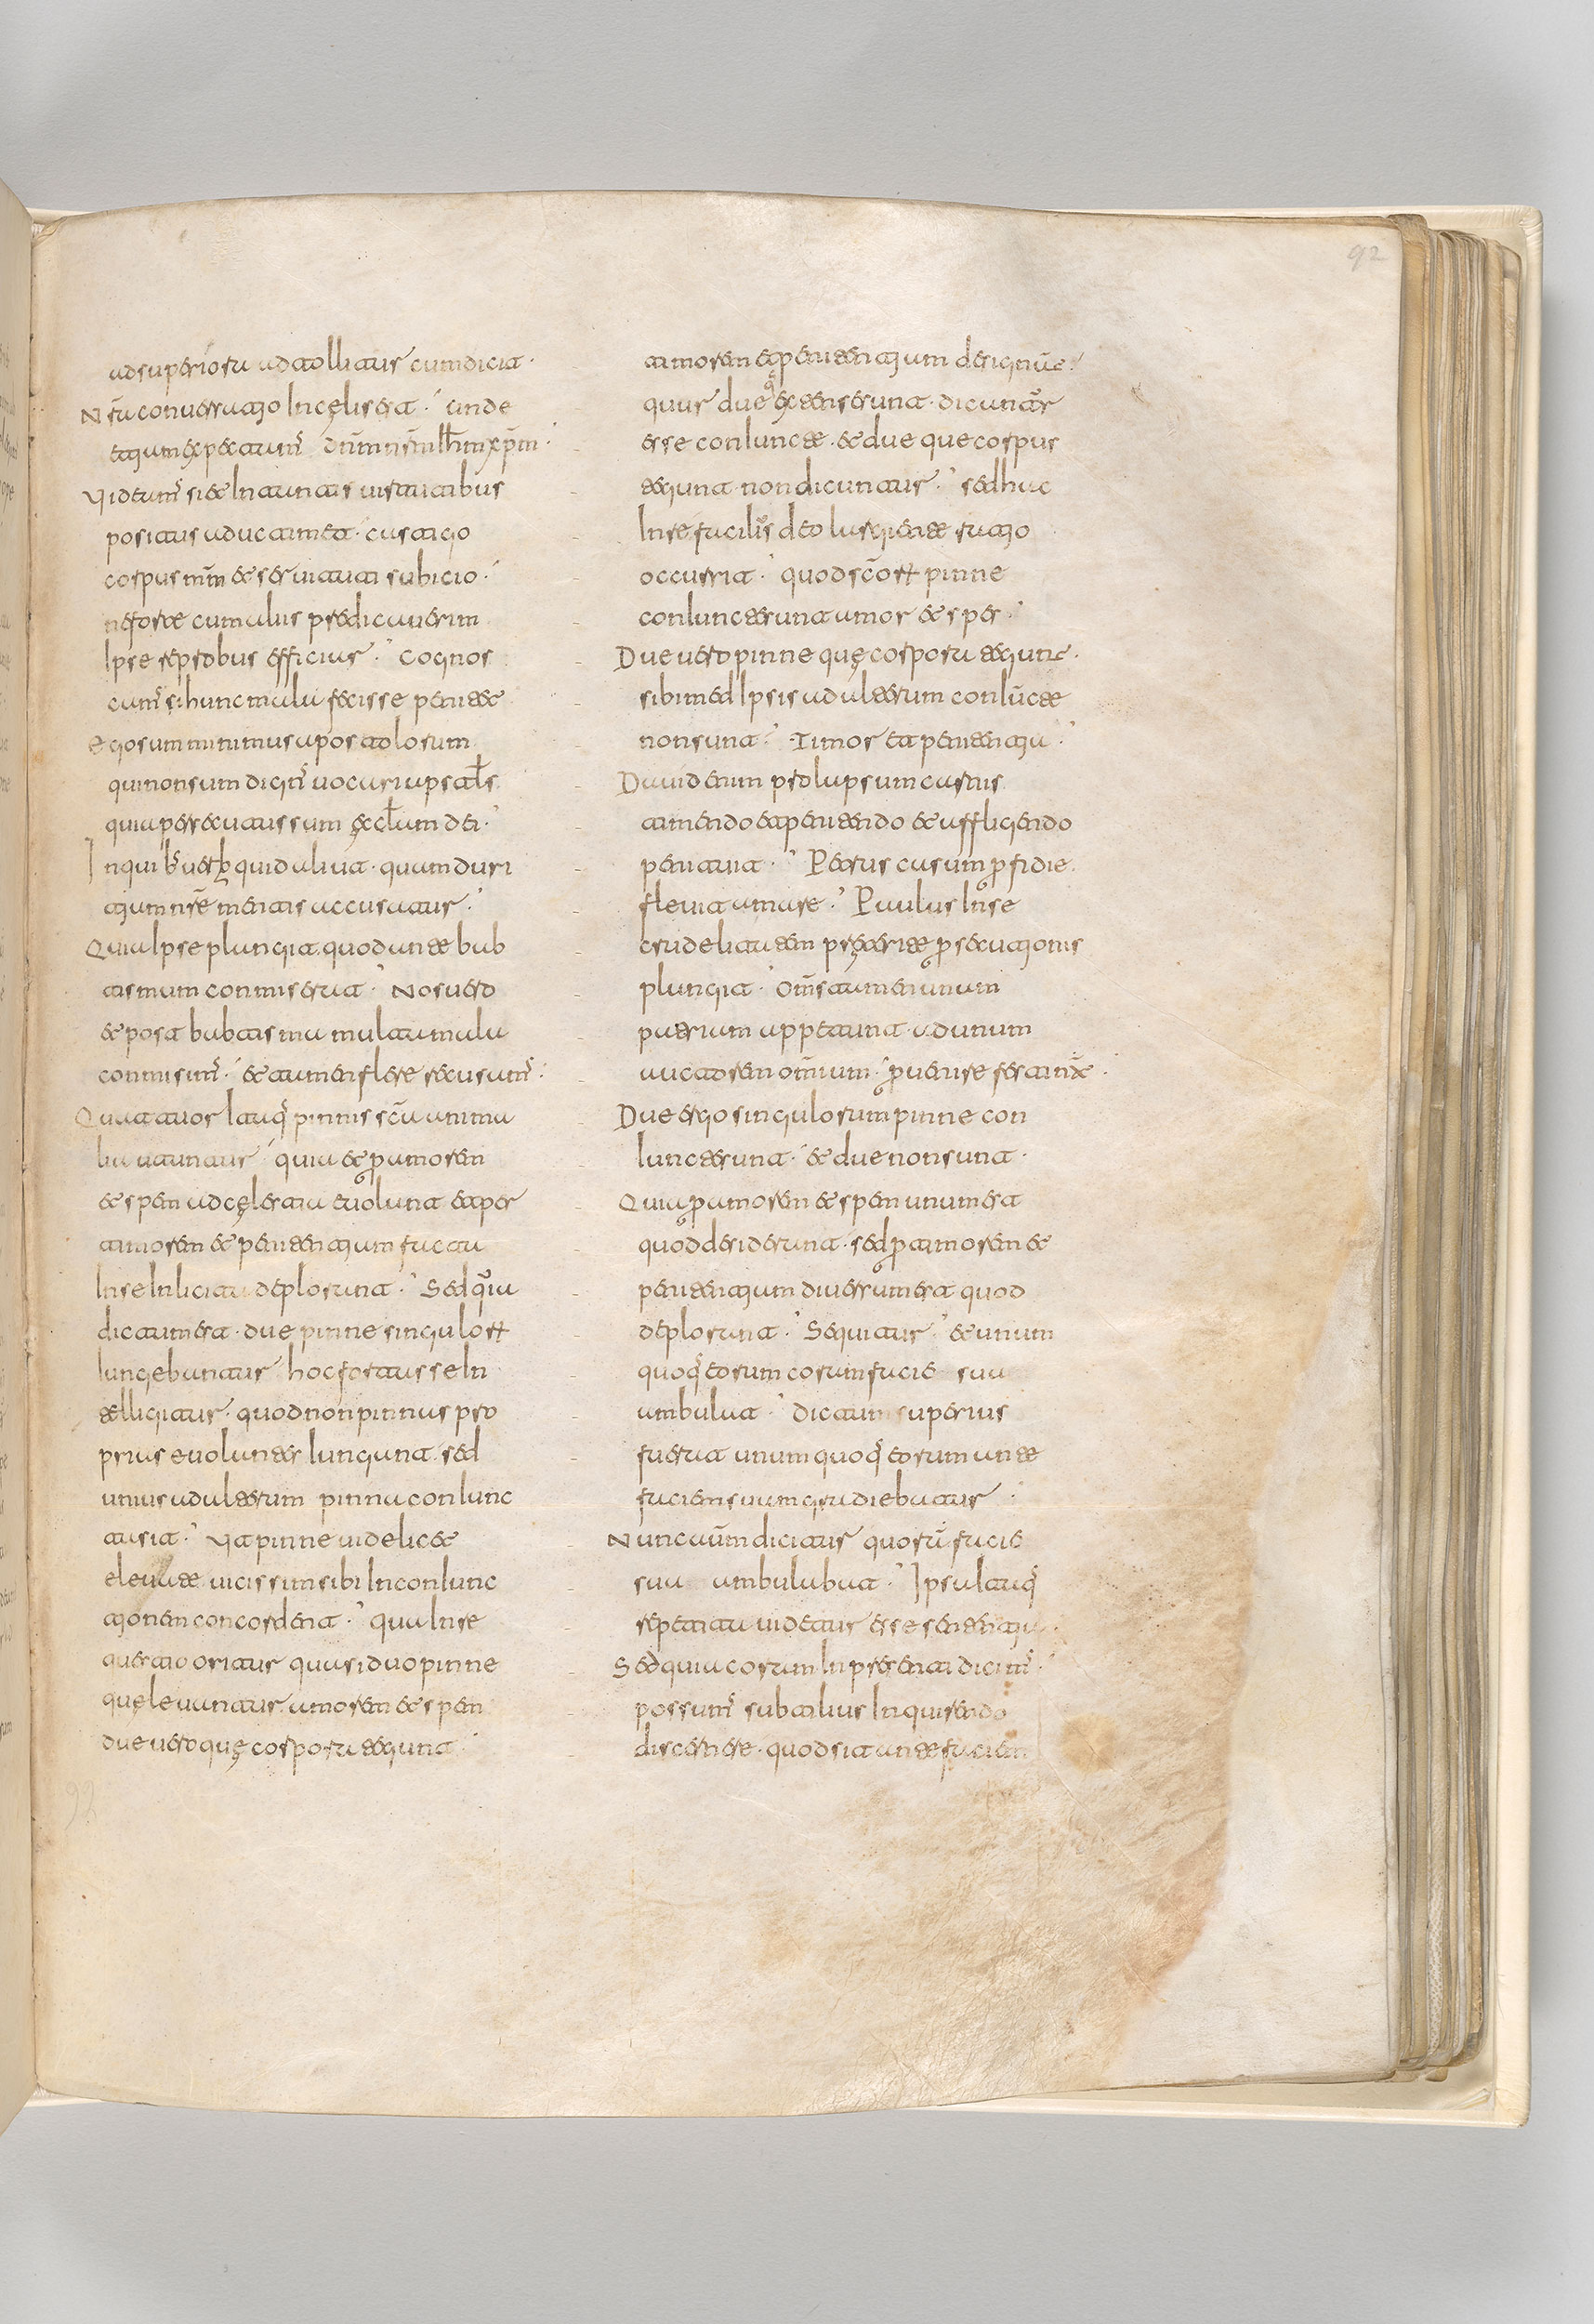 92
ad superiora adtollitur cum dicit·
Nr̄a conuersatio In cęlis est· Unde
etiam expectam' dn̄m nr̄m ihm̄ xp̄m·
Videam' si et In tantis uirtutibus
positus aduc timet· castigo
corpus mm̄ et seruituti subicio·
ne forte cum aliis predicauerim
Ipse reprobus efficiar· Cognos
cam' si hunc mala fecisse penitet
Ego sum minimus apostolorum
qui non sum dign' uocari apstls
quia persecutus sum eccl̄am dei·
In quib' uerbis quid aliut· quam duri
tiam nr̄e mentis accusatur·
Quia Ipse plangit quod ante bab
tismum conmiserat· Nos uero
et post babtisma multa mala
conmisim'· et tamen flere recusam'·
Quattuor Itaq' pinnis sc̄a anima
lia uelantur quia et p amorem
et spem ad cęlestia euolant et per
timorem et penitentiam facta
In se Inlicita deplorant· Sed quia
dictum est· due pinne singulorum
Iungebantur hoc fortasse In
tellegitur· quod non pinnas pro
prias euolantes Iungunt· sed
unius ad alterum pinna coniunc
ta sit· Ut pinne uidelicet
eleuate uicissim sibi In coniunc
tionem concordent· Qua In re
questio oritur quasi duo pinne
quę leuantur amorem et spem
due uero quę corpora tegunt
timorem et penitentiam designant·
quas due que extense erunt· dicuntur
esse coniuncte· et due que corpus
tegunt non dicuntur· Sed hac
In re facilius deo largiente ratio
occurrit· quod scorum pinne
coniuncte sunt amor et spes·
Due uero pinne quę corpora tegunt·
sibimed Ipsis ad alterum coniuncte
non sunt· Timor et penitentia·
Dauid enim pro lapsum carnis
timendo et penitendo et affligendo
penituit· Petrus casum perfidie
fleuit amare· Paulus In se
crudelitatem preterite persecutionis
plangit· Oms tamen unum
patrium appetunt· ad unum
auctorem omium· peruenire festinant·
Due ergo singulorum pinne con
Iuncte sunt· et due non sunt·
Quia p amorem et spem unum est
quod desiderant· sed p timorem et
penitentiam diuersum est quod
deplorant· Sequitur· et unum
quodq' eorum coram facie sua
ambulat· Dictum superius
fuerat unumquodq' eorum ante
faciem suam gradiebatur·
Nunc autm dicitur quoram facie
sua ambulabat· Ipsa Itaq'
repetita uidetur esse sententia·
Sed quia coram In presenti dicim'·
possum' subtilius Inquirendo
discernere· quod sit ante faciem
92